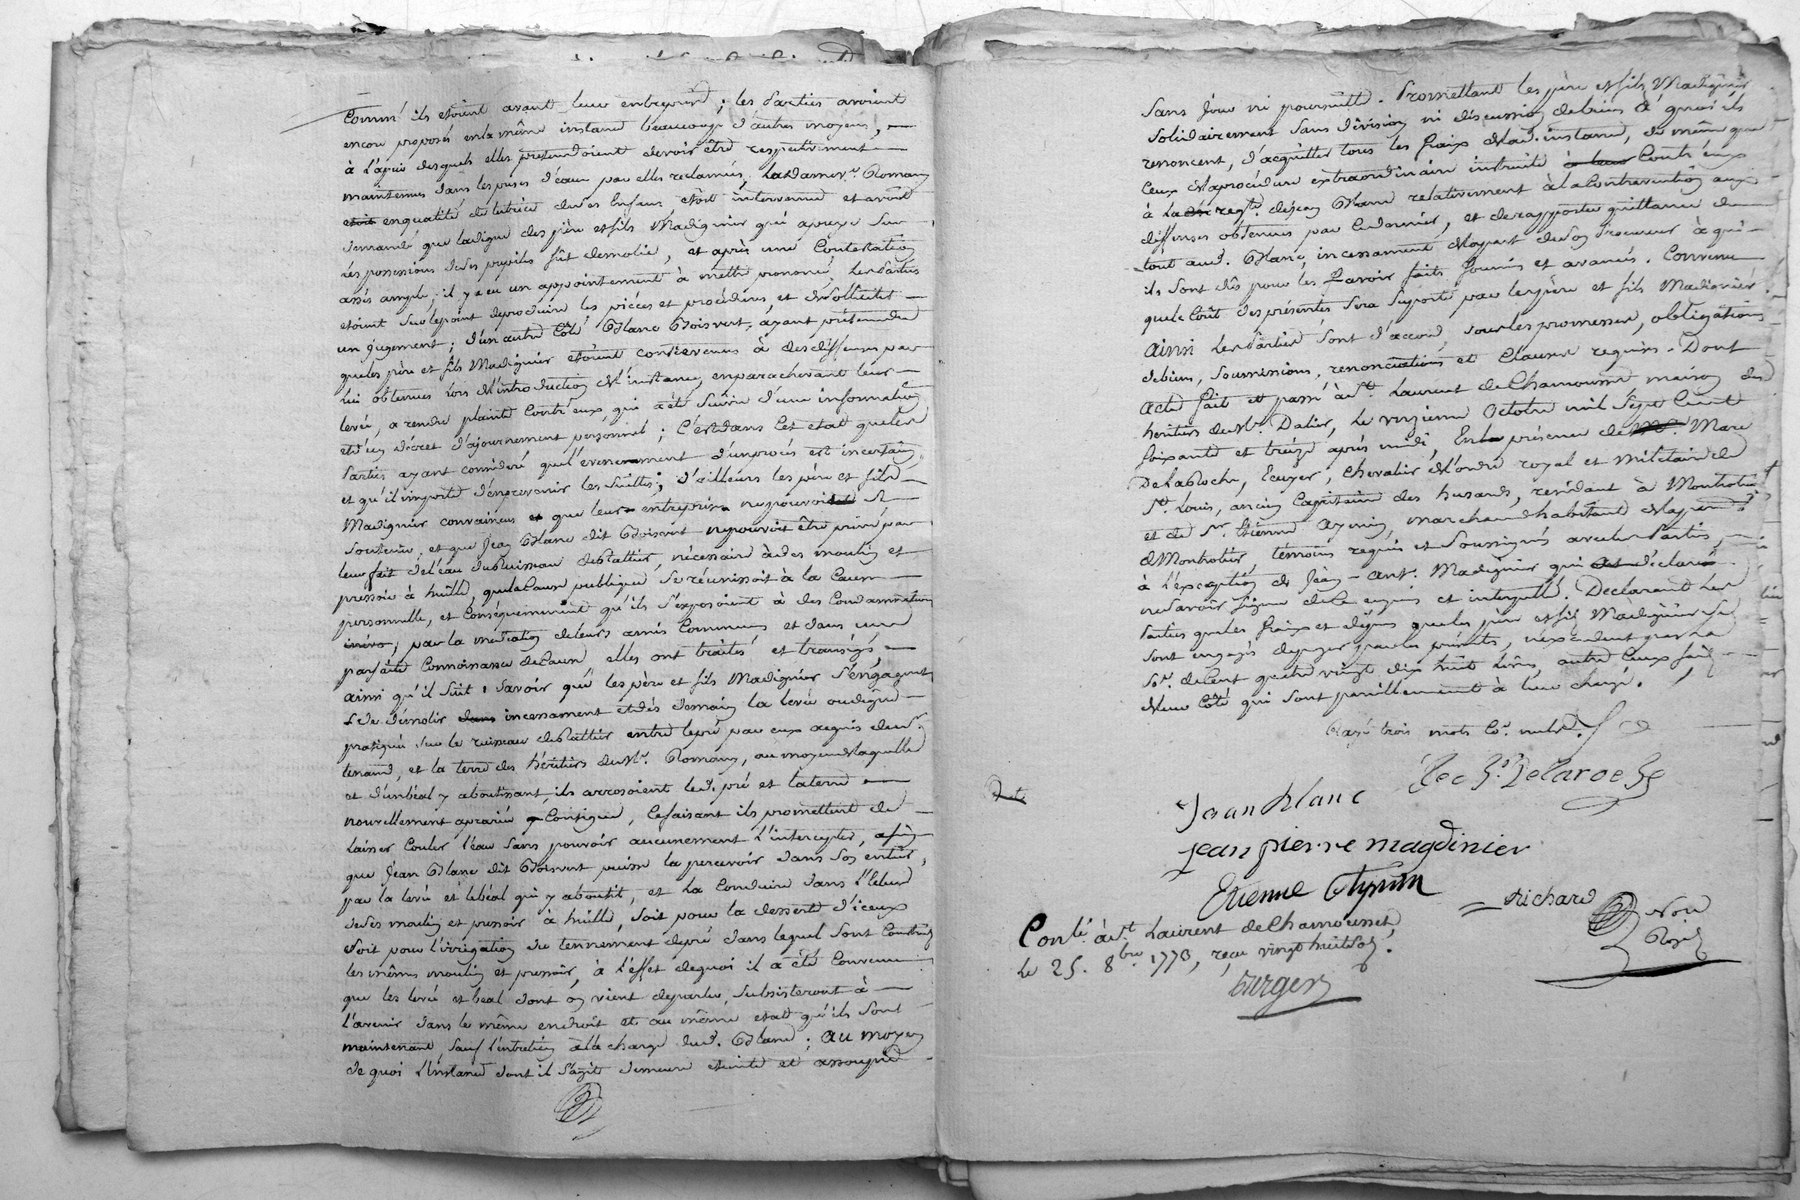 Comme ils etoient avant leur entreprise ; les parties avoient
encore proposés en la même instance beaucoup d'autres moyens,
à l'apuis desquels elles prétendoient devoir être respectivement
maintenues dans les prises d'eau par elles reclamées, La dame v.e Romany
en qualité de tutrice de ses Enfans étoit intervenue et avoit
demandé que la digue des père et fils Madignier qui apuye sur
les possessions de ses pupiles fût demolie, et après une Contestation
assés ample, il y a eu un appointement à mettre prononcé, Les parties
etoient sur le point de produire les piéces et procédures et de solliciter
un jugement ; d'un autre Côté Blanc Boisvert, ayant prétendu
que les père et fils Madignier étoient contrevenus à des deffenses par
lui obtenues lors de l'introduction de l'instance, en parachevant leur
levée, a rendu plainte Contr'eux, qui a été suivie d'une information
et d'un décret d'ajournement personnel ; C'est dans Cet etat que les
parties ayant consideré que l'evenement d'un procés est incertain,
et qu'il importe d'en prevenir les suittes ; d'ailleurs les père et fils
Madignier convaincus que leur entreprise ne pouvoit se
soutenir, et que Jean Blanc dit Boisvert ne pouvoit être privé par
leur fait de l'eau du Ruisseau de Rattier, nécessaire à des moulin et
pressoir à huille, que la Cause publique se réunissoit à la Cause
personnelle, et Conséquemment qu'ils s'exposoient à des Condamnations
, par la médiation de leurs amis Communs et dans une
parfaite Connoissance de Cause, elles ont traités et transigés,
ainsi qu'il suit : savoir que les père et fils Madignier s'engagent
de démolir incessament et dés demain la levée ou digue
pratiquée sur le ruisseau de Rattier entre le pré par eux acquis de
, et la terre des héritiers du Sr. Romany, au moyen de laquelle
et d'un béal y aboutissant, ils arrosoient led. pré et la terre
nouvellement apraiée y Contigue, Ce faisant ils promettent de
laisser Couler l'eau sans pouvoir aucunement l'intercepter, afin
que Jean Blanc dit Boisvert puisse la percevoir dans son entier,
par la levée et le béal qui y aboutit, et La Conduire dans l'
de ses moulin et pressoir à huille, soit pour la desserte d'iceux
soit pour l'irrigation du tennement de pré dans lequel sont Construits
les mêmes moulin et pressoir, à l'effet de quoi il a été Convenu
que les levée et béal dont on vient de parler, subsisteront à
l'avenir dans le même endroit et au même etat qu'ils sont
maintenant, sauf l'entretien à la charge dud. Blanc ; au moyen
de quoi l'instance dont il s'agit demeure éteinte et assoupie
sans suite ni poursuitte. Promettant les père et fils Madignier
solidairement sans division ni discussion de biens à quoi ils
renoncent, d'acquitter tous les fraix de lad. instance, de même que
Ceux de la procédure extraordinaire instruite Contr'eux
à La reqte. de Jean Blanc relativement à la Contravention aux
deffenses obtenues par Ce dernier, et de rapporter quittance du
tout aud. Blanc, incessament de la part de son Procureur à qui
ils sont dûs pour les avoir faits fournis et avancés. Convenu
que le Coût des présentes sera suporté par les père et fils Madignier
Ainsi Les parties sont d'accord, sous les promesses, obligations
de biens, soumissions, renonciations et Clauses requises. Dont
Acte fait et passé à St. Laurent de Chamousset maison des
héritiers du Sr. Dalier, Le vingtieme Octobre mil sept Cent
soixante et treize après midi, En présence de Marc
Delaroche, Ecuyer, Chevalier de l'ordre royal et militaire de
St. Louis, ancien Capitaine des husards, residant à Montrotier
et de sr. Etienne Aynin, marchand habitant de la
de Montrotier temoins requis et soussignés avec les parties,
à l'exception de Jean-Ant. Madignier qui a déclaré
ne savoir signer de Ce enquis et interpellé. Declarant Les
parties que les fraix et dépens que les père et fils Madignier se
sont engagés de payer par les présentes, n'excedent pas la
so.e de Cent quatre vingt dix huit Livres, outre Ceux faits
de leur Côté qui sont pareillement à leur charge.
Rayé trois mots Co. nuls.
Jean blanc Delaroche
jean pierre magdinier
Etienne Aynin
Richard Not. Royal
Conlé. à st Laurent de Chamousset,
Le 25. 8bre. 1773, reçu vingt huit sols.
Turges